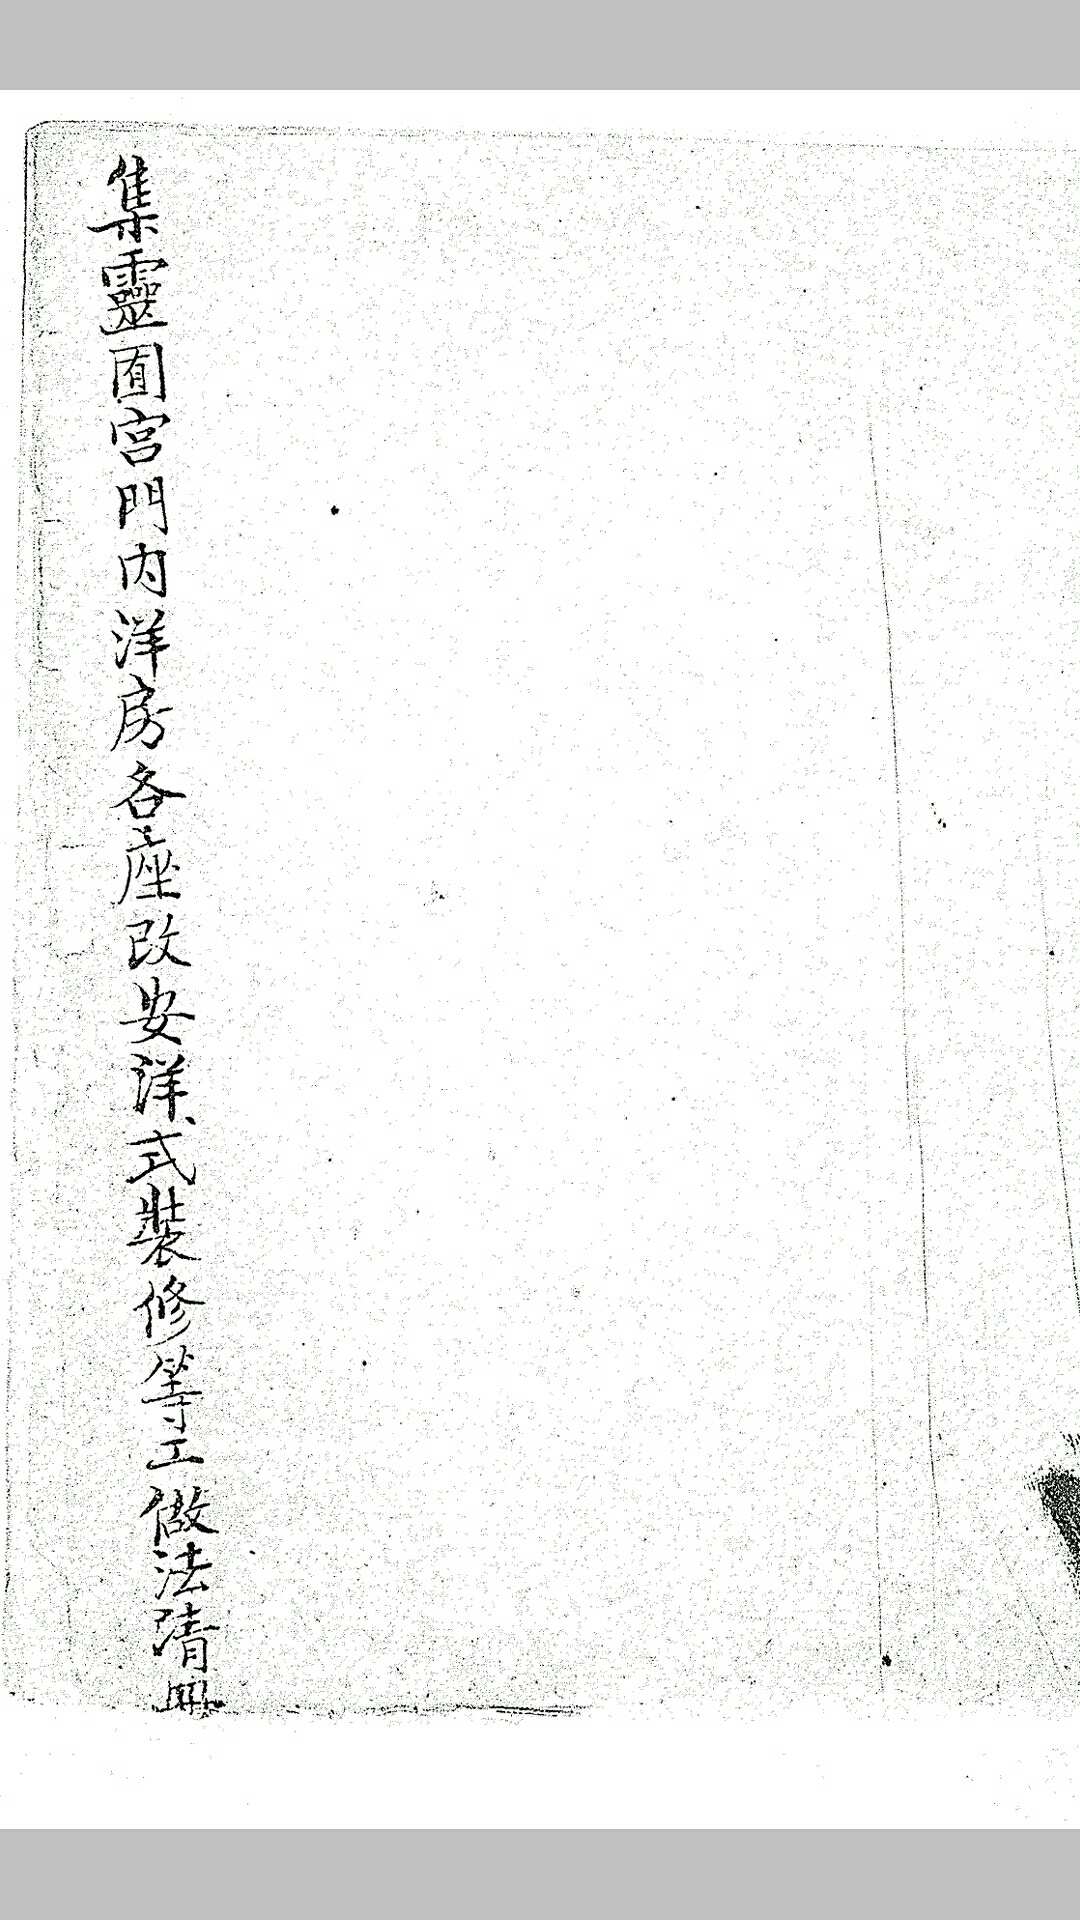 集靈囿宮門內洋房各座改安洋式裝修等工做法清冊